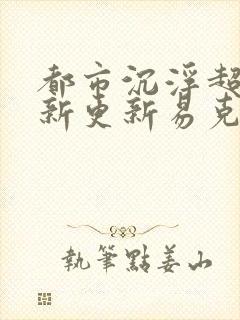 都市沉浮超
新更新易克
執筆點姜山